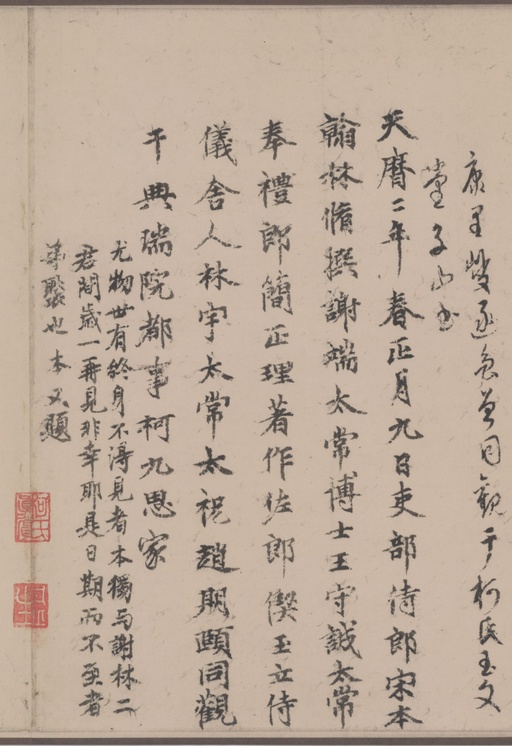 康里巎遂褧曽同觀于柯氏玉文
堂 子山書
天曆二年春正月九日吏部侍郎宋本
翰林脩撰謝端太常博士王守誠太常
奉禮郎簡正理著作佐郎偰玉立侍
儀舍人林宇太常太祝趙期頤同觀
于典瑞院都事柯九思家
尤物世有終身不得見者本獨与謝林二
君閒歲一再見非幸耶是日期而不至者
掲也本又題